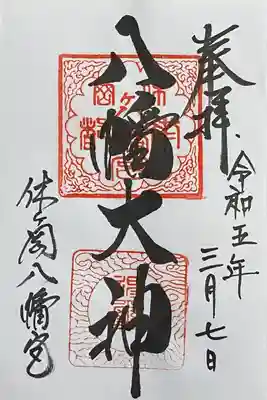 奉拝
令和五年
三月七日
八幡大神
休ヶ岡八幡宮